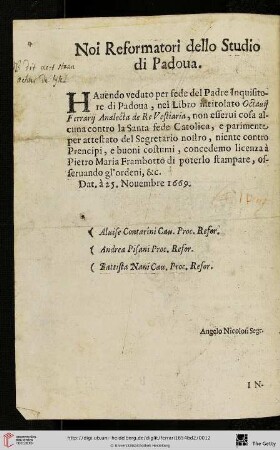 Noi Reformatori dello Studio
di Padoua.
HAuendo veduto per fede del Padre Inquisito-
re di Padoua, nel Libro intitolato Octauij
Ferrarij Analecta de Re Vestiaria, non esserui cosa al-
cuna contro la Santa fede Catolica, e parimente
per attestato del Segretario nostro, niente contro
Prencipi, e buoni costumi, concedemo licenza à
Pietro Maria Frambotto di poterlo stampare, os-
seruando gl'ordeni, &c.
Dat. à 25. Nouembre 1669.
( Aluise Contarini Cau. Proc. Refor.
( Andrea Pisani Proc. Refor.
( Battista Nani Cau. Proc. Refor.
Angelo Nicolosi Segr.
IN-
The Getty